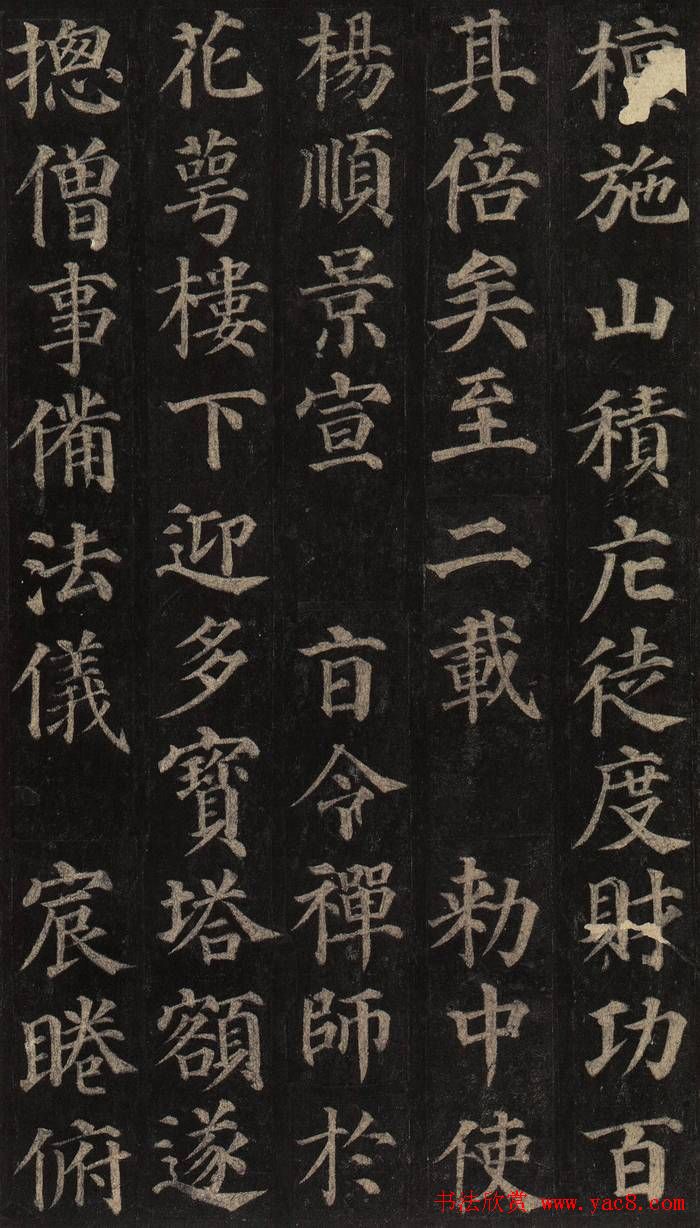 檀施山積庀徒度財功百
其倍矣至二載 勅中使
楊順景宣 㫖令禪師於
花萼樓下迎多寶塔額遂
揔僧事備法儀 宸睠俯
书法欣赏 www.yac8.com